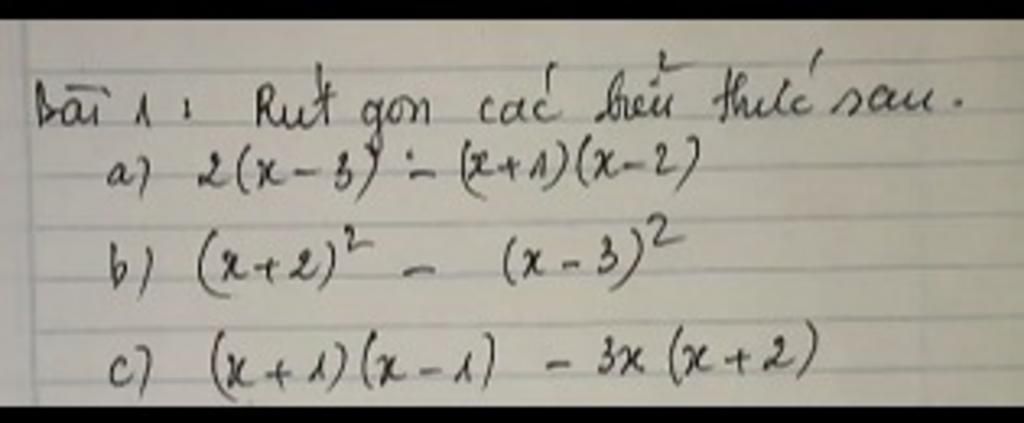 Bài 1: Rút gọn các biểu thức sau.
a) 2(x-3) - (x+1)(x-2)
b) (x+2)² - (x-3)²
c) (x+1)(x-1) - 3x(x+2)